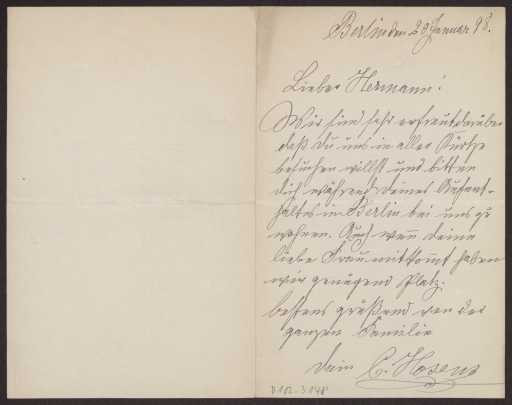 Berlin den 29 Januar 98.
Lieber Hermann!
Wir sind sehr erfreut darüber
daß Du uns in aller Kürtze
besuchen willst und bitten
dich während deines Aufent-
haltes in Berlin bei uns zu
wohnen. Auch wenn deine
liebe Frau mitkommt haben
wir genügend Platz.
bestens grüßend von der
ganzen Familie
dein C. Hosens
D 102-3.148